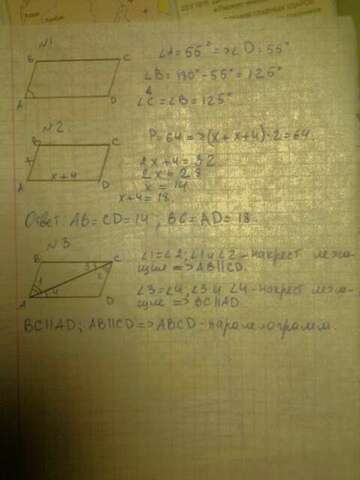 N1
B C
A D
∠A=55° => ∠D=55°
∠B=180°-55°=125°
∠C=∠B=125°
N2.
B C
A D
x
x+4
P=64=>(x+x+4)·2=64.
2x+4=32
2x=28
x=14
x+4=18.
Ответ: AB=CD=14; BC=AD=18.
N3
B C
A D
∠1=∠2; ∠1 и ∠2 - накрест лежа-
щие => AB||CD.
∠3=∠4, ∠3 и ∠4 - накрест лежа-
щие => BC||AD.
BC||AD; AB||CD => ABCD - паралелограмм.